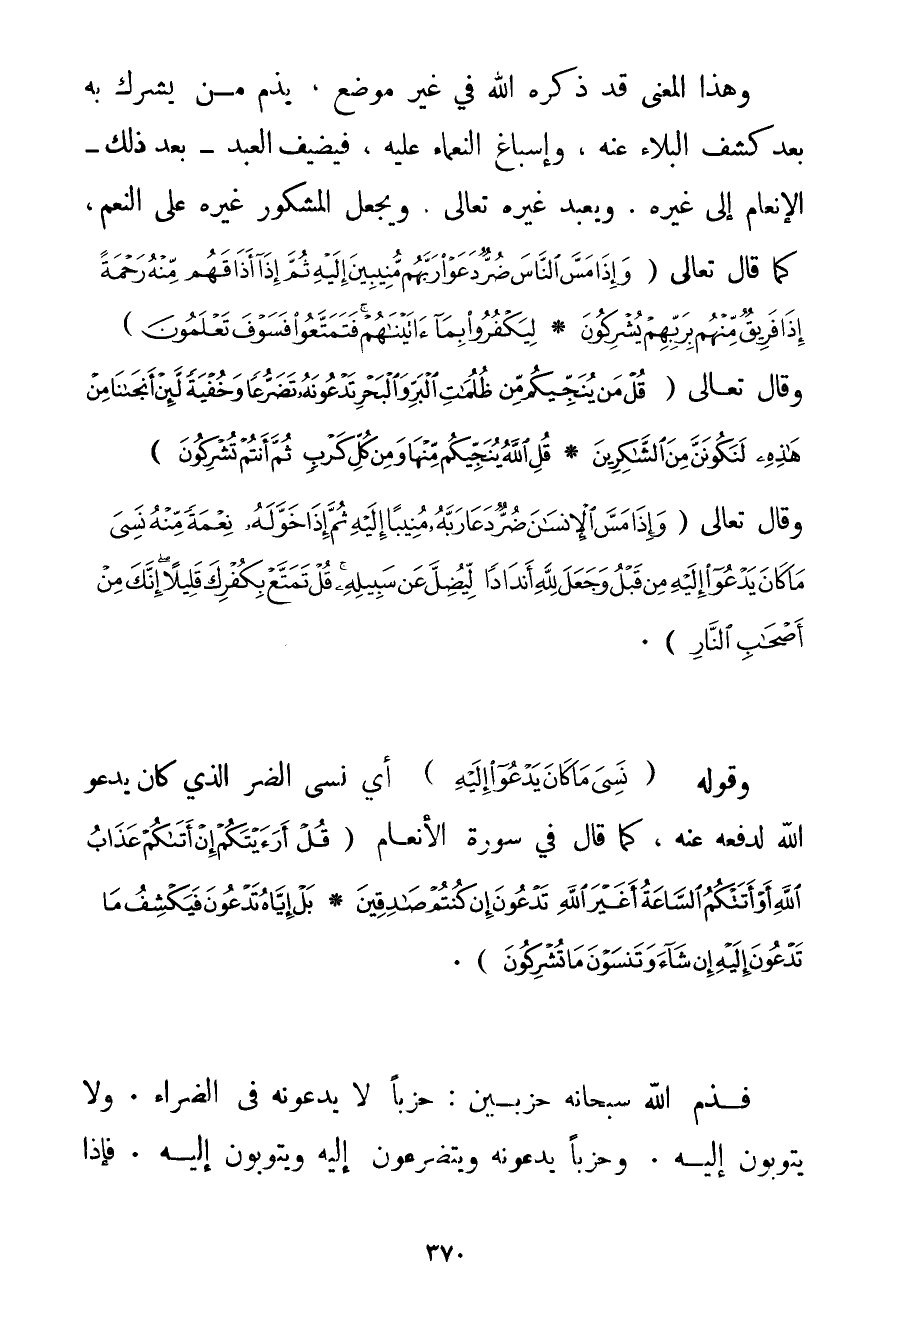 وهذا المعنى قد ذكره الله في غير موضع ، يذم مــن يشرك به
بعد كشف البلاء عنه ، وإسباغ النعماء عليه ، فيضيف العبد ــ بعد ذلك ــ
الإنعام إلى غيره . ويعبد غيره تعالى . ويجعل المشكور غيره على النعم ،
كما قال تعالى ( وَإِذَا مَسَّ ٱلنَّاسَ ضُرٌّ دَعَوْا۟ رَبَّهُم مُّنِيبِينَ إِلَيْهِ ثُمَّ إِذَآ أَذَاقَهُم مِّنْهُ رَحْمَةً
إِذَا فَرِيقٌ مِّنْهُم بِرَبِّهِمْ يُشْرِكُونَ * لِيَكْفُرُوا۟ بِمَآ ءَاتَيْنَٰهُمْ ۚ فَتَمَتَّعُوا۟ فَسَوْفَ تَعْلَمُونَ )
وقال تعــالى ( قُلْ مَن يُنَجِّيكُم مِّن ظُلُمَٰتِ ٱلْبَرِّ وَٱلْبَحْرِ تَدْعُونَهُۥ تَضَرُّعًا وَخُفْيَةً لَّئِنْ أَنجَىٰنَا مِنْ
هَٰذِهِۦ لَنَكُونَنَّ مِنَ ٱلشَّٰكِرِينَ * قُلِ ٱللَّهُ يُنَجِّيكُم مِّنْهَا وَمِن كُلِّ كَرْبٍ ثُمَّ أَنتُمْ تُشْرِكُونَ )
وقال تعالى ( وَإِذَا مَسَّ ٱلْإِنسَٰنَ ضُرٌّ دَعَا رَبَّهُۥ مُنِيبًا إِلَيْهِ ثُمَّ إِذَا خَوَّلَهُۥ نِعْمَةً مِّنْهُ نَسِىَ
مَا كَانَ يَدْعُوٓا۟ إِلَيْهِ مِن قَبْلُ وَجَعَلَ لِلَّهِ أَندَادًا لِّيُضِلَّ عَن سَبِيلِهِۦ ۚ قُلْ تَمَتَّعْ بِكُفْرِكَ قَلِيلًا ۖ إِنَّكَ مِنْ
أَصْحَٰبِ ٱلنَّارِ ) .
وقوله ( نَسِىَ مَا كَانَ يَدْعُوٓا۟ إِلَيْهِ ) أي نسى الضر الذي كان يدعو
الله لدفعه عنه ، كما قال في سورة الأنعــام ( قُلْ أَرَءَيْتَكُمْ إِنْ أَتَىٰكُمْ عَذَابُ
ٱللَّهِ أَوْ أَتَتْكُمُ ٱلسَّاعَةُ أَغَيْرَ ٱللَّهِ تَدْعُونَ إِن كُنتُمْ صَٰدِقِينَ * بَلْ إِيَّاهُ تَدْعُونَ فَيَكْشِفُ مَا
تَدْعُونَ إِلَيْهِ إِن شَآءَ وَتَنسَوْنَ مَا تُشْرِكُونَ ) .
فــذم الله سبحانه حزبــين : حزباً لا يدعونه فى الضراء . ولا
يتوبون إليــه . وحزباً يدعونه ويتضرعون إليه ويتوبون إليــه . فإذا
٣٧٠